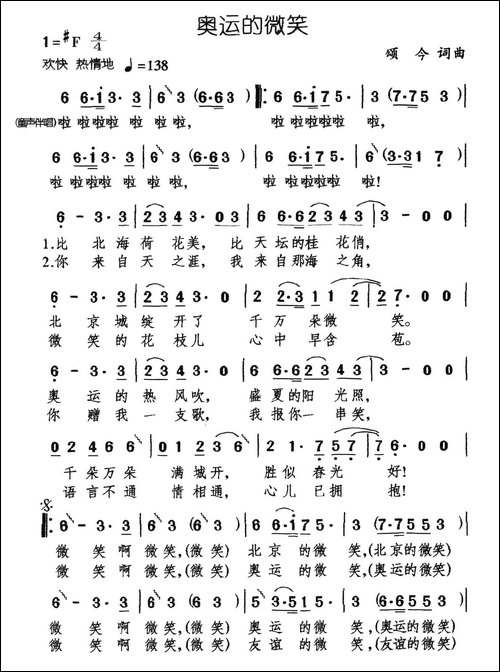 奥运的微笑
1=♯F 4/4
颂 今 词曲
欢快 热情地 ♩=138
6 6·i 3· 3 | 6 3 (6·6 3) |: 6 6·i 7 5· | 3 (7·7 5 3) |
(童声伴唱) 啦 啦啦啦 啦 啦 啦, 啦 啦啦啦 啦,
6 6·i 3· 3 | 6 3 (6·6 3) | 6 6·i 7 5· | 6 (3·3 1 7) |
啦 啦啦啦 啦 啦 啦, 啦 啦啦啦 啦!
6 - 3· 3 | 2 3 4 3· 0 3 | 6 6·6 2 3 4 | 3 - 0 0 |
1.比 北海荷 花美, 比 天坛的桂 花俏,
2.你 来自天 之涯, 我 来自那海 之角,
6 - 3· 3 | 2 3 4 3· 0 | 2 2·3 1 1 2 | 2 7· 0 0 |
北 京城绽 开了 千 万 朵微 笑。
微 笑的花 枝儿 心 中 早含 苞。
6 - 3· 3 | 2 3 4 3· 0 | 6 6·6 2 3 4 | 3 - 0 0 |
奥 运的热 风吹, 盛 夏的阳 光照,
你 赠我一 支歌, 我 报你一 串笑,
0 2 4 6 6 | 0 1 2 3 6 | 2 1· 7 5 7 | 7 6· 0 0 |
千朵万朵 满城开, 胜似 春光 好!
语言不通 情相通, 心儿 已拥 抱!
6 - 3· 3 | 6 3 (6 3) | 6 6·i 7 5 | 3 (7·7 5 5 3) |
微 笑啊 微笑,(微笑) 北京 的微 笑,(北京的微笑)
微 笑啊 微笑,(微笑) 奥运 的微 笑,(奥运的微笑)
6 - 3· 3 | 6 3 (6 3) | 5 3·5 1 5 | 3 (6·6 5 5 3) |
微 笑啊 微笑,(微笑) 奥运 的微 笑,(奥运的微笑)
微 笑啊 微笑,(微笑) 友谊 的微 笑,(友谊的微笑)